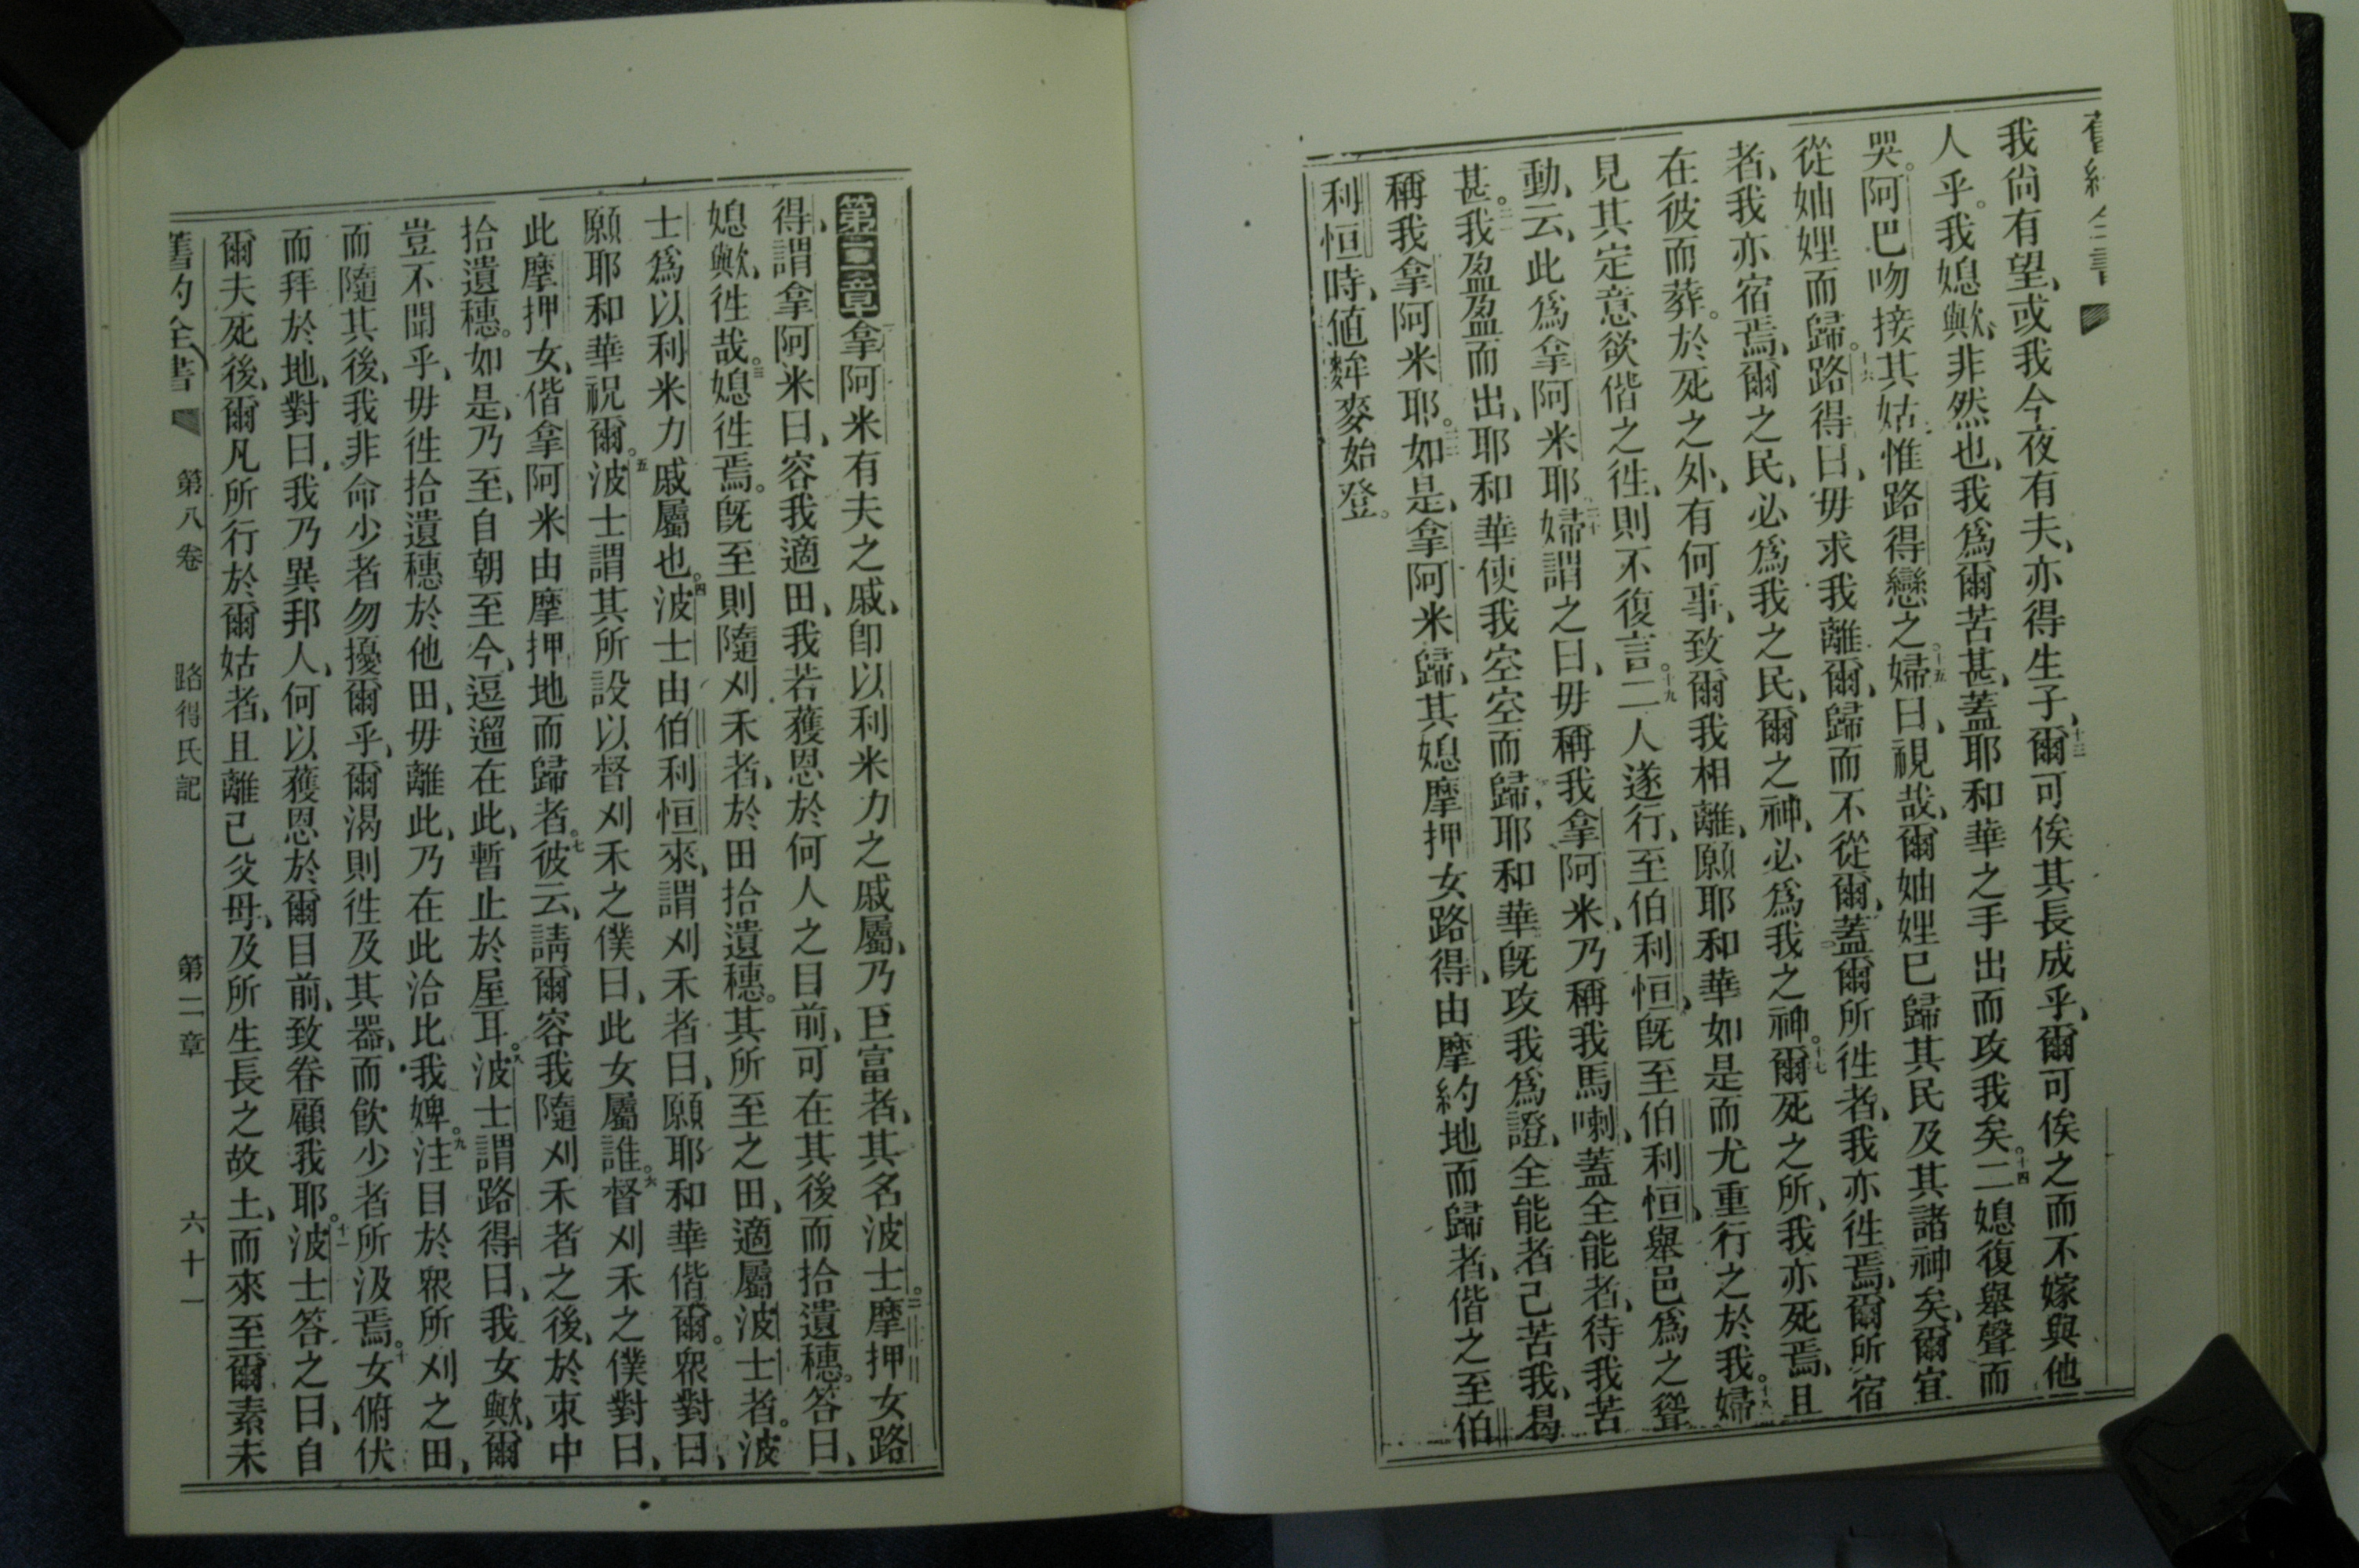 舊約全書
我尙有望、或我今夜有夫、亦得生子、十三爾可俟其長成乎、爾可俟之而不嫁與他
人乎。我媳歟、非然也、我爲爾苦甚、蓋耶和華之手出而攻我矣。十四二媳復舉聲而
哭。阿巴吻接其姑、惟路得戀之。十五婦曰、視哉、爾妯娌已歸其民及其諸神矣、爾宜
從妯娌而歸。十六路得曰、毋求我離爾、歸而不從爾、蓋爾所徃者、我亦徃焉、爾所宿
者、我亦宿焉、爾之民、必爲我之民、爾之神、必爲我之神。十七爾死之所、我亦死焉、且
在彼而葬。於死之外、有何事、致爾我相離、願耶和華如是而尤重行之於我。十八婦
見其定意欲偕之徃、則不復言。十九二人遂行、至伯利恒、旣至伯利恒、舉邑爲之聳
動、云、此爲拿阿米耶。二十婦謂之曰、毋稱我拿阿米、乃稱我馬喇、蓋全能者、待我苦
甚。二一我盈盈而出、耶和華使我空空而歸、耶和華旣攻我爲證、全能者己苦我、曷
稱我拿阿米耶。二二如是、拿阿米歸、其媳摩押女路得、由摩約地而歸者、偕之至伯
利恒時、値麰麥始登。
第二章拿阿米有夫之戚、卽以利米力之戚屬、乃巨富者、其名波士。二摩押女路
得、謂拿阿米曰、容我適田、我若獲恩於何人之目前、可在其後而拾遺穗。答曰、
媳歟、徃哉。三媳徃焉。旣至則隨刈禾者、於田拾遺穗。其所至之田、適屬波士者。波
士爲以利米力戚屬也。四波士由伯利恒來、謂刈禾者曰、願耶和華偕爾。衆對曰、
願耶和華祝爾。五波士謂其所設以督刈禾之僕曰、此女屬誰。六督刈禾之僕對曰、
此摩押女、偕拿阿米由摩押地而歸者。七彼云、請爾容我隨刈禾者之後、於束中
拾遺穗。如是、乃至、自朝至今、逗遛在此、暫止於屋耳。八波士謂路得曰、我女歟、爾
豈不聞乎、毋徃拾遺穗於他田、毋離此、乃在此洽比我婢。九注目於衆所刈之田、
而隨其後、我非命少者勿擾爾乎、爾渴則徃及其器、而飮少者所汲焉。十女俯伏
而拜於地、對曰、我乃異邦人、何以獲恩於爾目前、致眷顧我耶。十一波士答之曰、自
爾夫死後、爾凡所行於爾姑者、且離己父母、及所生長之故土、而來至爾素未
舊約全書 第八卷 路得氏記 第二章 六十一